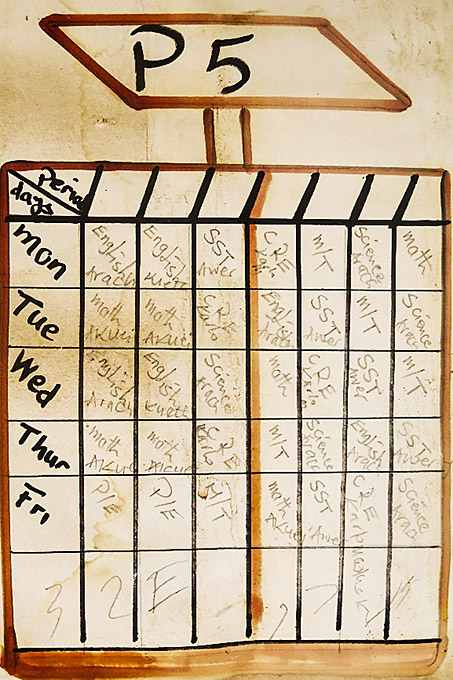 P5
Period
days
Mon English Arach English Kuett SST Awer CRE M/T Science Arach math
Tue math AKuei math AKuei CRE English Arach SST Awer M/T Science Arach
Wed English Arach English Kuett Science Arach math CRE SST Awer M/T
Thur math AKuei math Akuei CRE M/T Science Arach English Arach SST Awer
Fri P/E P/E M/T math AKuei SST Awer CRE Science Arach